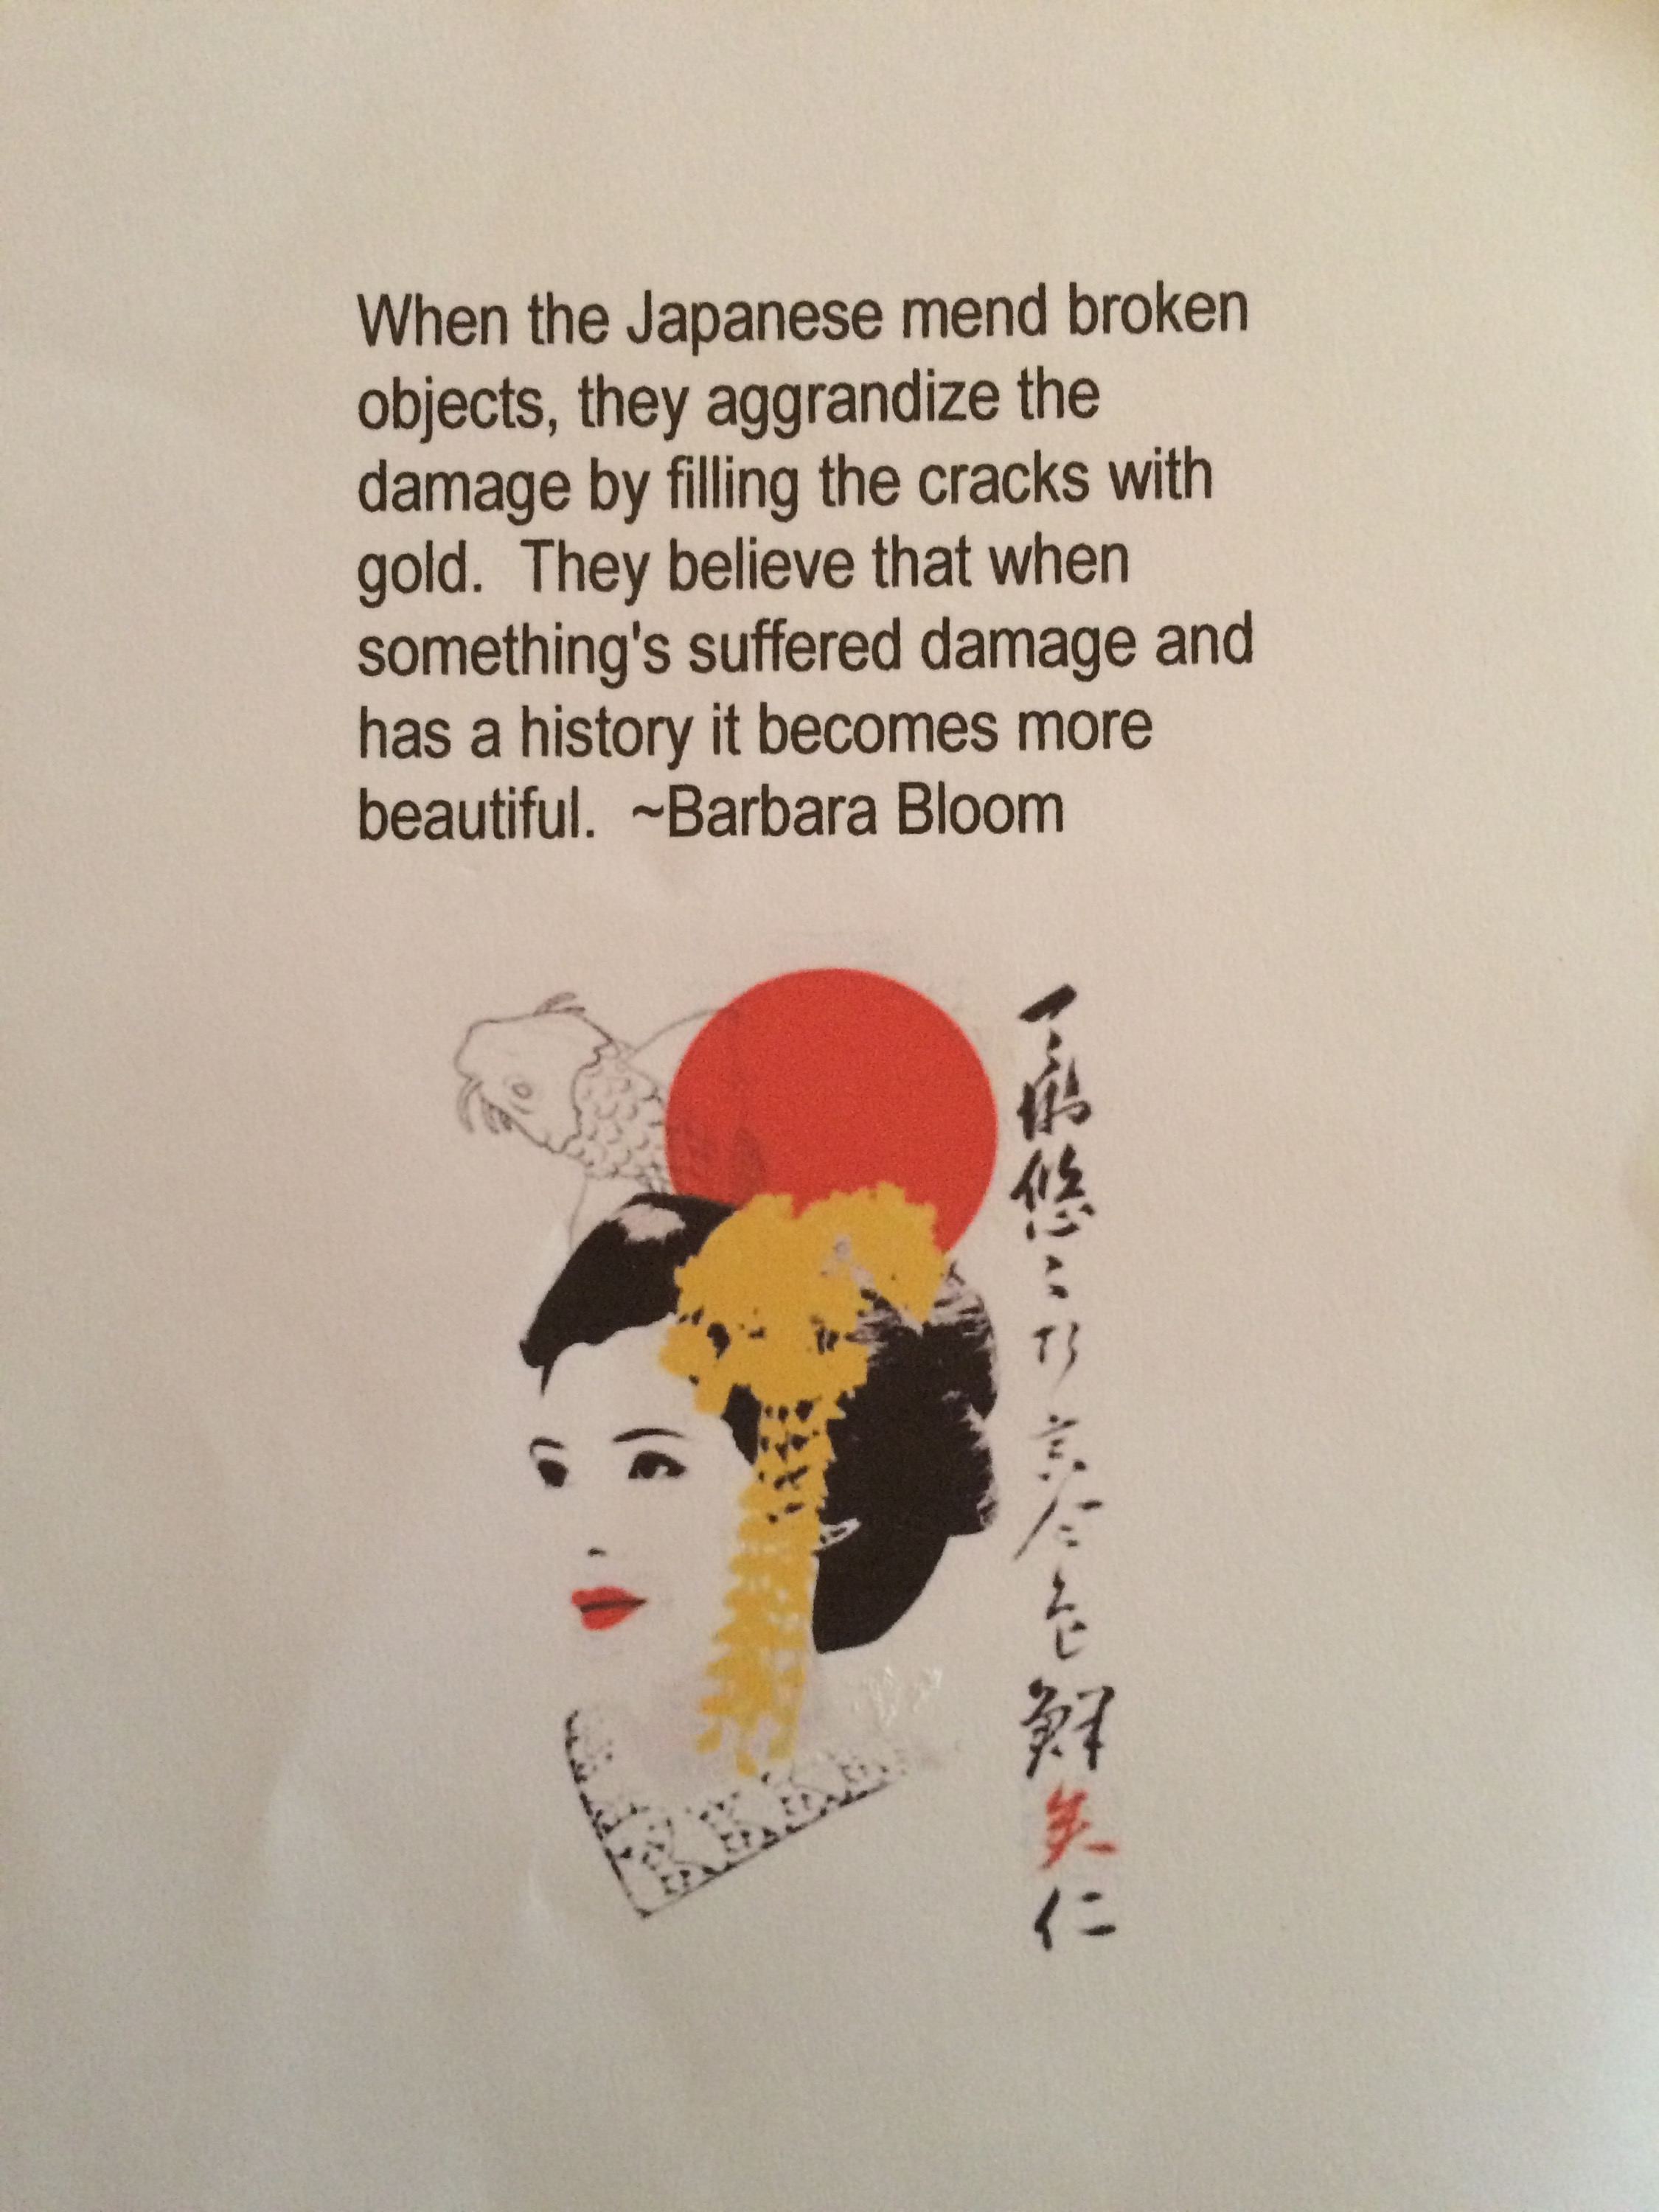 When the Japanese mend broken
objects, they aggrandize the
damage by filling the cracks with
gold.  They believe that when
something's suffered damage and
has a history it becomes more
beautiful.  ~Barbara Bloom
悠
鮮
仁